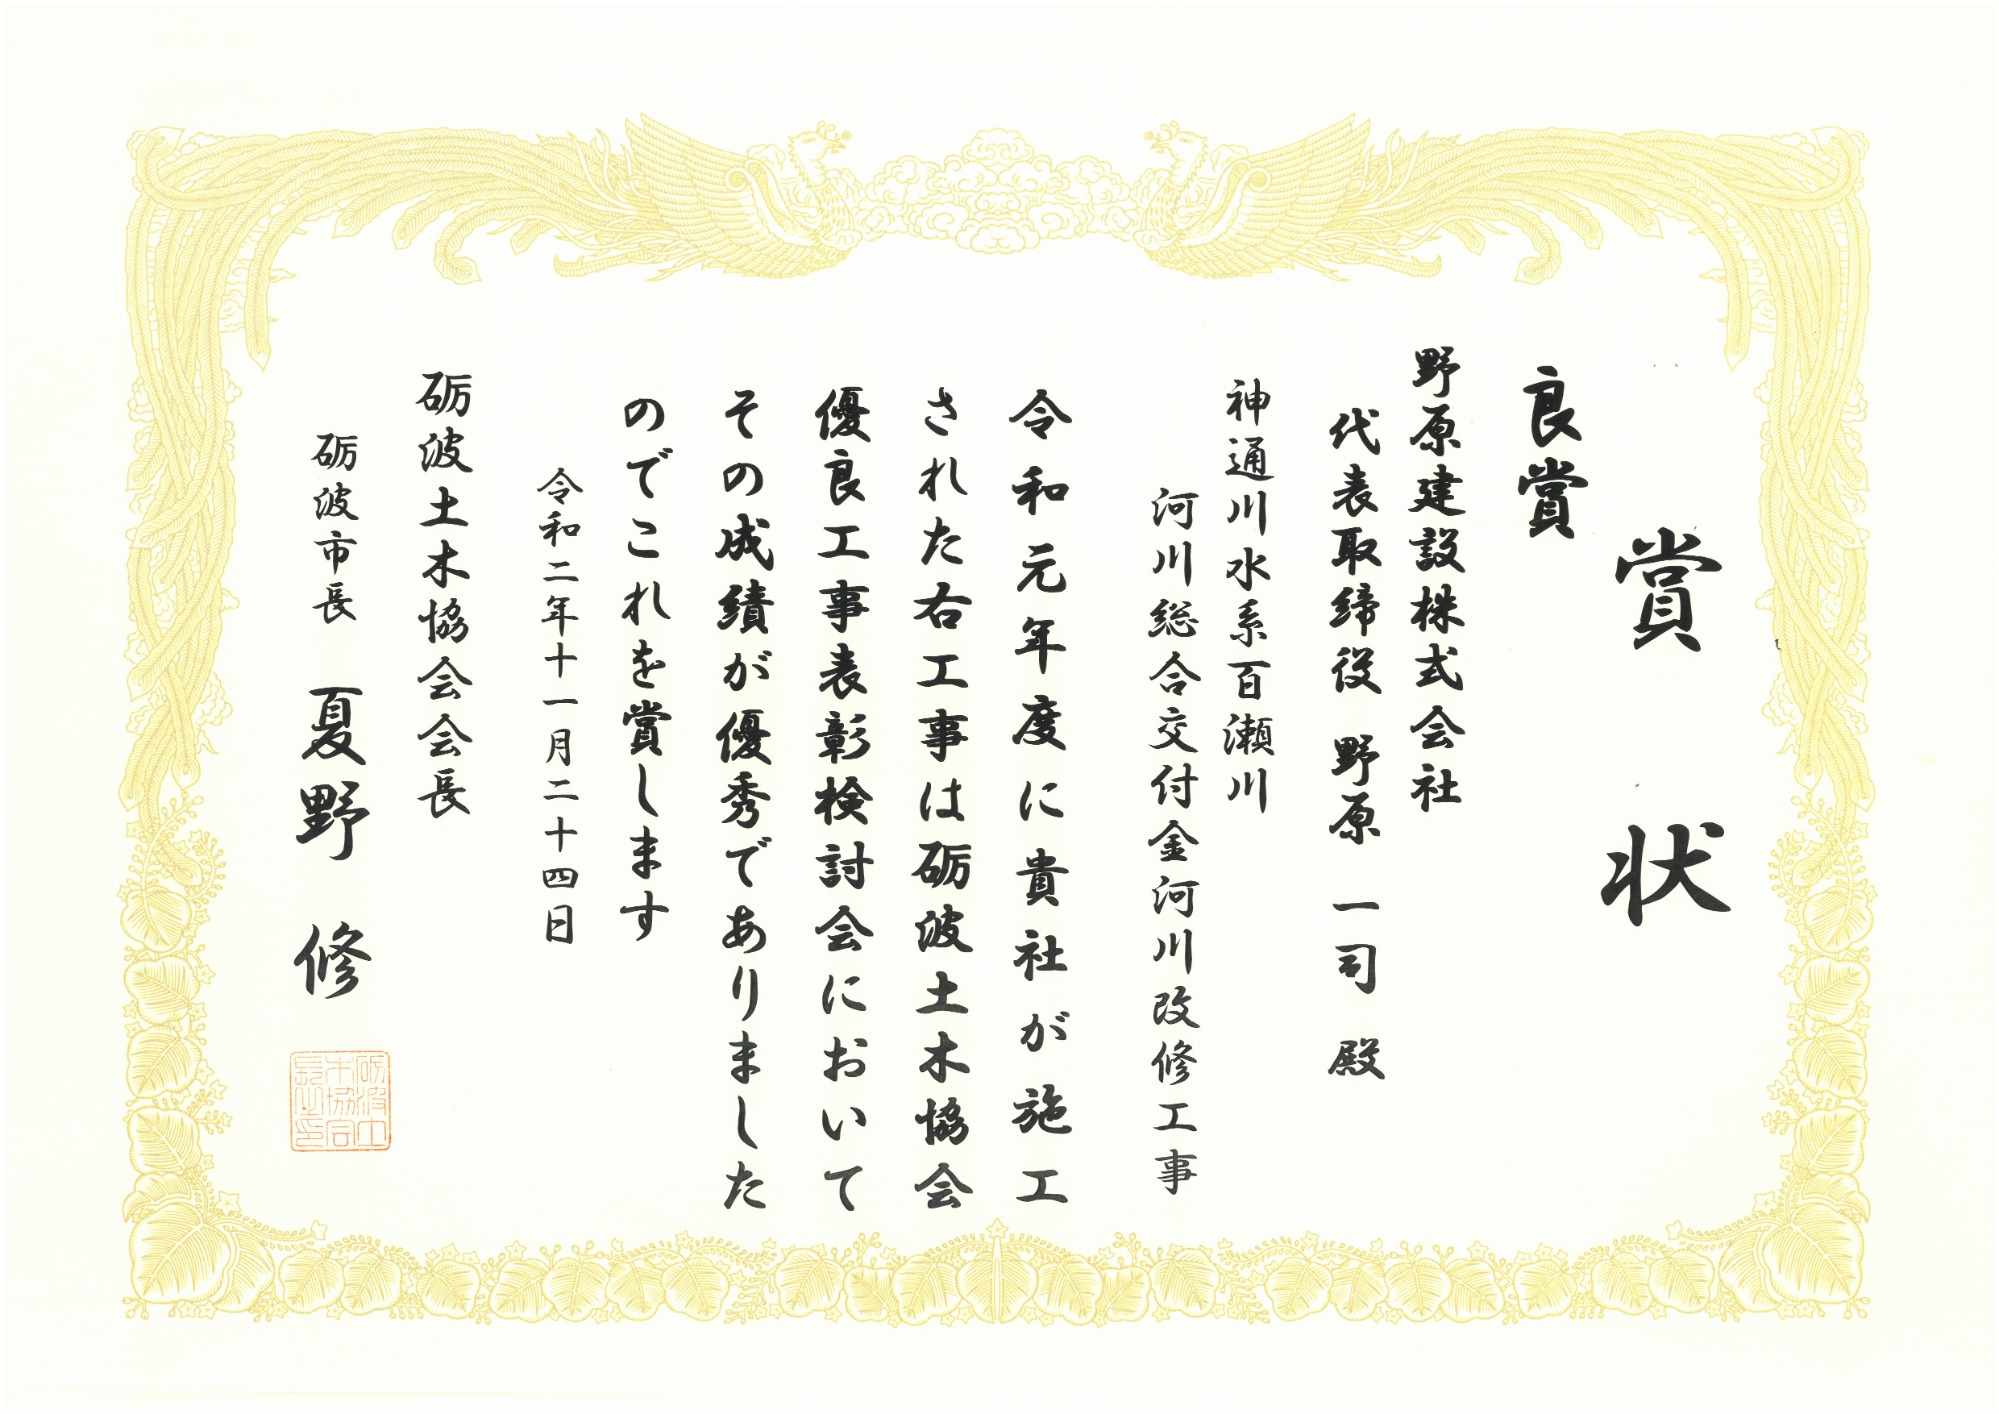 賞状
良賞
野原建設株式会社
代表取締役 野原 一司 殿
神通川水系百瀬川
河川総合交付金河川改修工事
令和元年度に貴社が施工
された右工事は砺波土木協会
優良工事表彰検討会において
その成績が優秀でありました
のでこれを賞します
令和二年十一月二十四日
砺波土木協会会長
砺波市長 夏野 修
砺波土木協会長之印